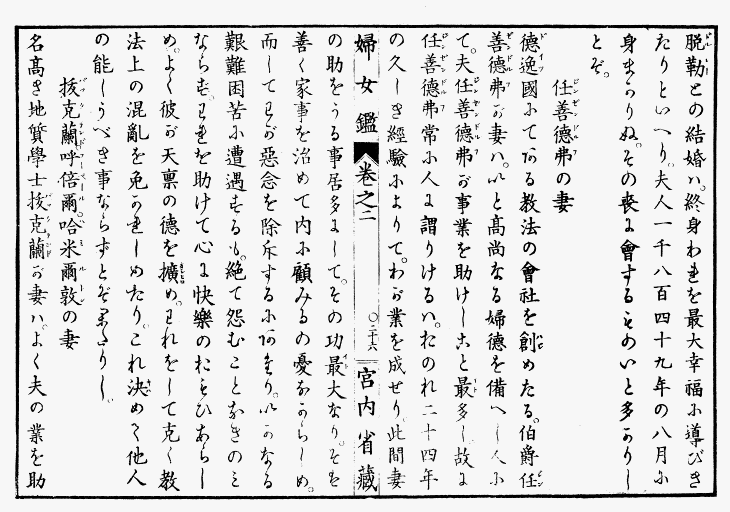 脫勒との結婚ハ。終身われを最大幸福に導びき
たりといへり。夫人一千八百四十九年の八月に
身まかりぬ。その喪に會するものいと多かりし
とぞ。
任善德弗の妻
德逸國にてある教法の會社を創めたる。伯爵任
善德弗が妻ハ。いと高尚なる婦德を備へし人に
て。夫任善德弗が事業を助けしこと最多し。故に
任善德弗常に人に謂りけるハ。おのれ二十四年
の久しき經驗によりて。わが業を成せり。此間妻
婦女鑑 卷之二 ○二十六 宮内省藏
の助をうる事居多にして。その功最大なり。そを
善く家事を治めて内に顧みるの憂なからしめ。
而してわが惡念を除斥するにあり。いかなる
艱難困苦に遭遇するも。絶て怨むことなきのミ
ならず。われを助けて心に快樂のおもひあらし
め。よく彼が天禀の德を擴め。われをして克く教
法上の混亂を免かれしめたり。これ決めて他人
の能しうべき事ならずとぞ
拔克蘭呼倍爾哈米爾敦の妻
名高き地質學士拔克蘭が妻ハ。よく夫の業を助